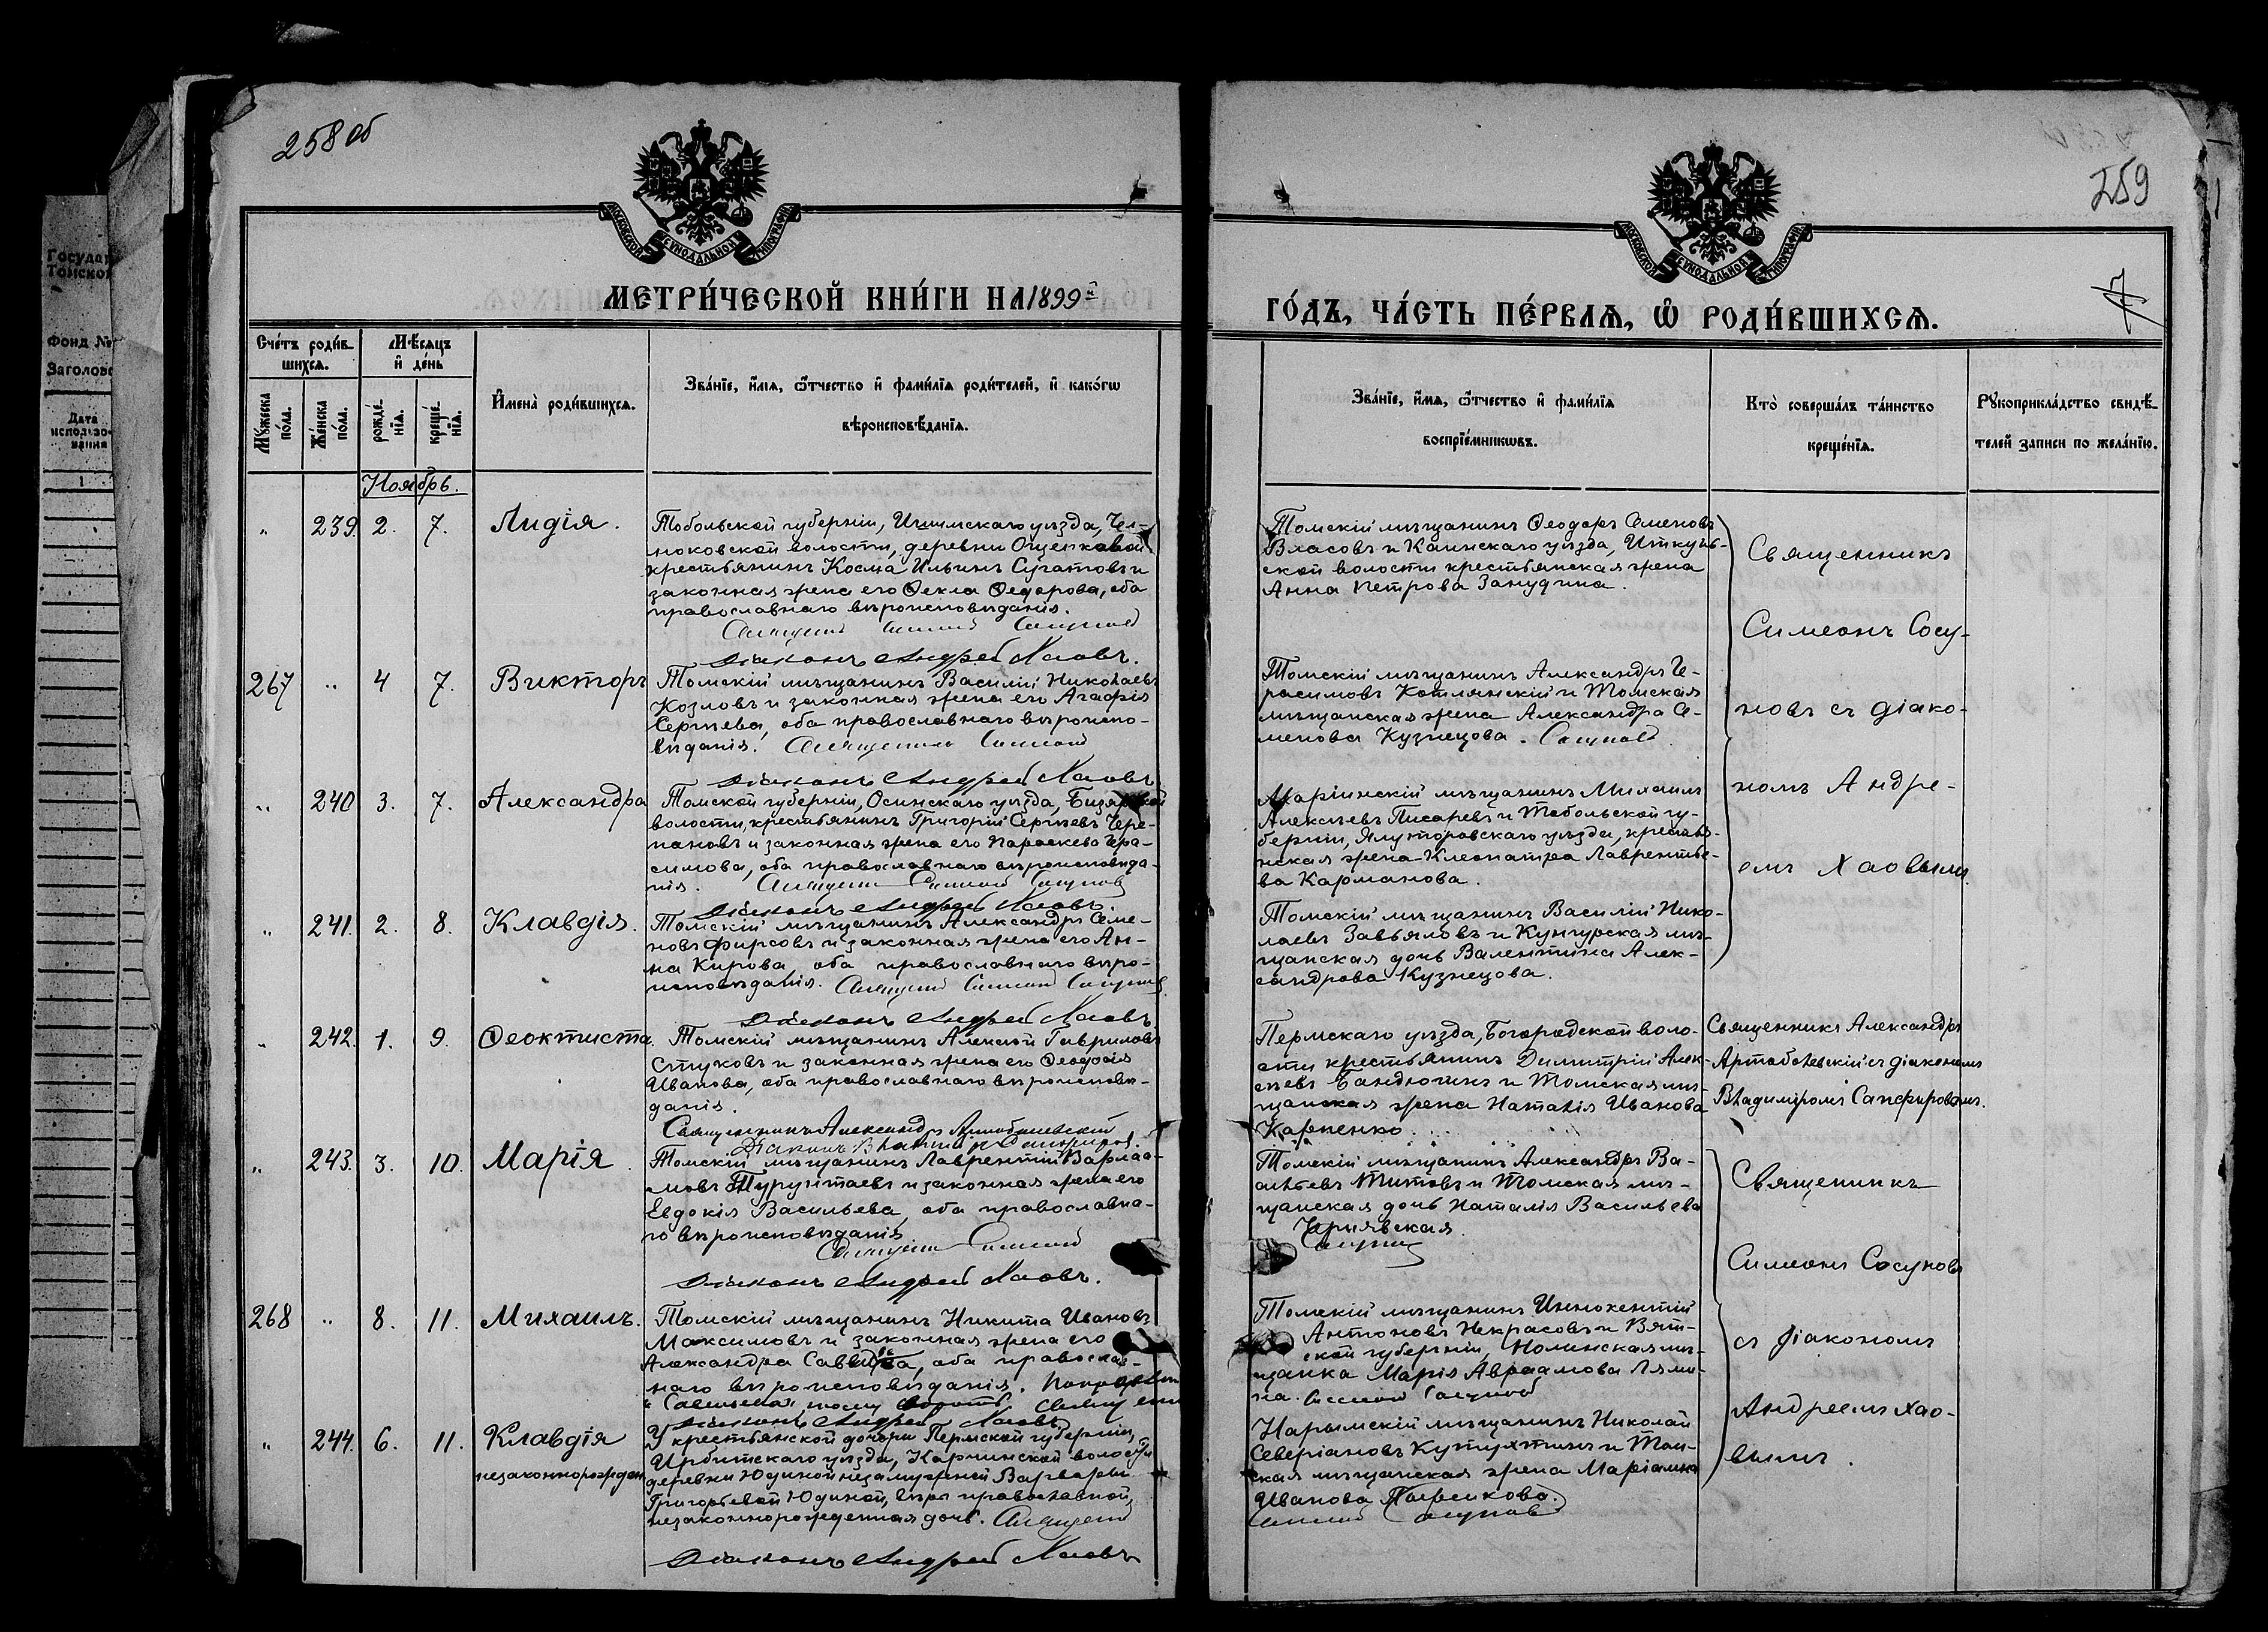 258 об
259
Государ
Томской
Фонд №
Заголово
Дата
использо-
вания
1
МОСКОВСКОЙ СѴНОДАЛЬНОЙ ТИПОГРАФІИ
МОСКОВСКОЙ СѴНОДАЛЬНОЙ ТИПОГРАФІИ
МЕТРИ́ЧЕСКОЙ КНИ́ГИ НА 1899й
ГО́ДЪ, ЧА́СТЬ ПЕ́РВАѦ, Ѡ҆ РОДИ́ВШИХСѦ.
Сче́тъ роди́в-
шихсѧ.
Мѣ́сѧцъ
и҆ де́нь
Мꙋ́жеска
по́ла.
Же́нска
по́ла.
рожде́-
нїѧ.
креще́-
нїѧ.
И҆мена̀ роди́вшихсѧ.
Зва́нїе, и҆́мѧ, ѻ҆́тчество и҆ фами́лїѧ роди́телей, и҆ како́гѡ
вѣроисповѣ́данїѧ.
Зва́нїе, и҆́мѧ, ѻ҆́тчество и҆ фами́лїѧ
воспрїе́мникѡвъ.
Кто̀ соверша́лъ та́инство
креще́нїѧ.
Рꙋкоприкла́дство свидѣ́-
телей записи по жела́нїю.
Ноябрь.
" 239. 2. 7. Лидія.
Тобольской губерніи, Ишимскаго уѣзда, Чел-
ноковской волости, деревни Ощепковой
крестьянинъ Косма Ильинъ Сугатовъ и
законная жена его Ѳекла Ѳедорова, оба
православнаго вѣроисповѣданія.
Священник Симеон Сосунов
Діаконъ Андрей Хаовъ.
Томскій мѣщанинъ Ѳеодоръ Семеновъ
Власовъ и Каинскаго уѣзда, Иткуль-
ской волости крестьянская жена
Анна Петрова Занудина.
Священникъ
Симеонъ Сосу-
новъ съ діако-
номъ Андре-
емъ Хаовымъ.
267 " 4 7. Викторъ
Томскій мѣщанинъ Василій Николаевъ
Козловъ и законная жена его Агафія
Сергѣева, оба православнаго вѣроиспо-
вѣданія. Священникъ Симеон
Діаконъ Андрей Хаовъ.
Томскій мѣщанинъ Александръ Ге-
расимовъ Котлянскій и Томская
мѣщанская жена Александра Се-
менова Кузнецова. Сосунов.
" 240 3. 7. Александра
Томской губерніи, Осинскаго уѣзда,
волости, крестьянинъ Григорій Сергѣевъ Чере-
пановъ и законная жена его Параскева Гера-
симова, оба православнаго вѣроисповѣда-
нія. Священник Симеон Сосунов
Діаконъ Андрей Хаовъ.
Маріинскій мѣщанинъ Михаилъ
Алексѣевъ Писаревъ и Тобольской гу-
берніи, Ялуторовскаго уѣзда, крестья-
нская жена Клеопатра Лаврентье-
ва Карманова.
" 241. 2. 8. Клавдія.
Томскій мѣщанинъ Александръ Семе-
новъ Фирсовъ и законная жена его Ан-
на Кирова, оба православнаго вѣро-
исповѣданія. Священник Симеон Сосунов
Діаконъ Андрей Хаовъ
Томскій мѣщанинъ Василій Нико-
лаевъ Завьяловъ и Кунгурская мѣ-
щанская дочь Валентина Алек-
сандрова Кузнецова.
" 242. 1. 9. Ѳеоктиста.
Томскій мѣщанинъ Алексѣй Гавриловъ
Стуковъ и законная жена его Ѳеодосія
Иванова, оба православнаго вѣроисповѣ-
данія.
Священникъ Александръ Артоболевскій
Діаконъ Владиміръ Сапфировъ.
Пермскаго уѣзда, Богородской воло-
сти крестьянинъ Димитрій Алек-
сѣевъ Бандюгинъ и Томская мѣ-
щанская жена Наталія Иванова
Карпенко.
Священникъ Александръ
Артоболевскій съ діакономъ
Владиміромъ Сапфировымъ.
" 243. 3. 10. Марія
Томскій мѣщанинъ Лаврентій Варлаа-
мовъ Турунтаевъ и законная жена его
Евдокія Васильева, оба православна-
го вѣроисповѣданія
Священник Симеон
Діаконъ Андрей Хаовъ.
Томскій мѣщанинъ Александръ Ва-
сильевъ Титовъ и Томская мѣ-
щанская дочь Наталія Васильева
Чернявская.
Сосунов
Священникъ
Симеонъ Сосуновъ
съ діакономъ
Андреемъ Хао-
вымъ.
268 " 8. 11. Михаилъ.
Томскій мѣщанинъ Никита Ивановъ
Максимовъ и законная жена его
Александра Саввина, оба православ-
наго вѣроисповѣданія.
Діаконъ Андрей Хаовъ
Томскій мѣщанинъ Иннокентій
Антоновъ Некрасовъ и Вят-
ской губерніи, Нолинская мѣ-
щанка Марія Авраамова Лями-
на. Симеон Сосунов
" 244. 6. 11. Клавдія
незаконнорожден
У крестьянской дочери Пермской губерніи,
Ирбитскаго уѣзда, волости
деревни Юдиной незамужней Варвары
Григорьевой Юдиной, вѣры православной,
незаконнорожденная дочь. Священник
Діаконъ Андрей Хаовъ
Нарымскій мѣщанинъ Николай
Северіановъ Кутухтинъ и Том-
ская мѣщанская жена Маріамна
Иванова
Симеон Сосунов